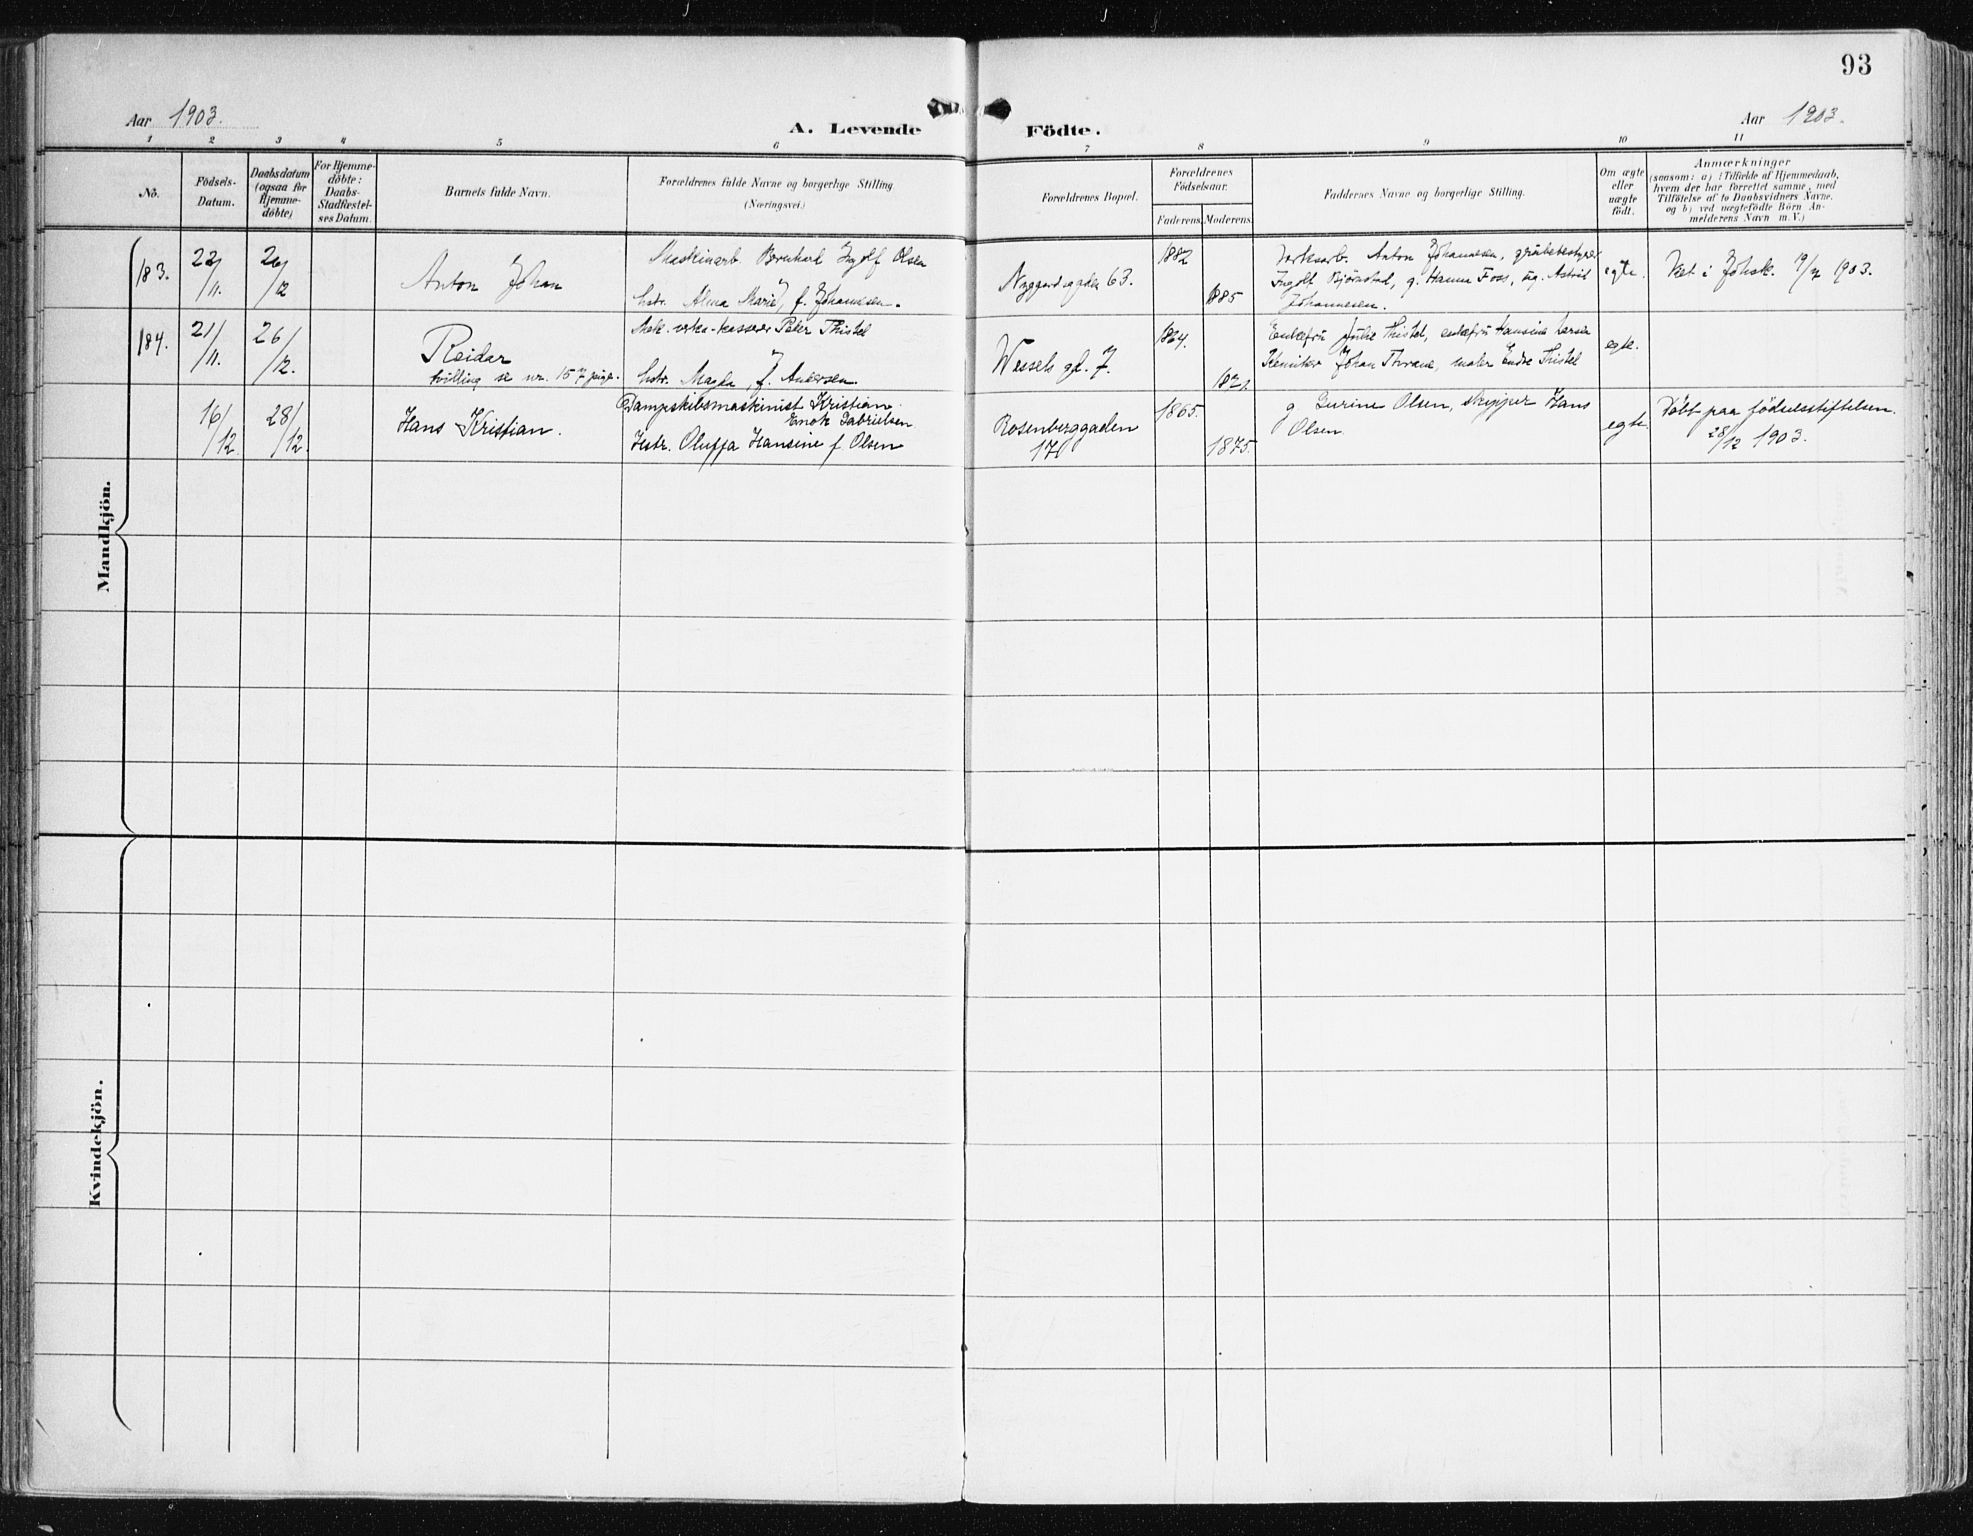 93
Aar 1903.
A. Levende Födte.
Aar 1903.
1 2 3 4 5 6 7 8 9 10 11
No.
Födsels-
Datum.
Daabsdatum
(ogsaa for
Hjemme-
döbte)
For Hjemme-
döbte:
Daabs-
Stadfæstel-
ses Datum.
Barnets fulde Navn.
Forældrenes fulde Navne og borgerlige Stilling
(Næringsvei.)
Forældrenes Bopæl.
Forældrenes
Födselsaar.
Faderens. Moderens.
Faddernes Navne og borgerlige Stilling.
Om ægte
eller
uægte
födt.
Anmærkninger
(saasom: a) i Tilfælde af Hjemmedaab,
hvem der har forrettet samme, med
Tilföielse af to Daabsvidners Navne.
og b) ved uægtefödte Börn An-
melderens Navn m. V.)
Mandkjön.
183.
22/11.
26/12
Anton Johan
Maskinarb Bernhard Ingolf Olsen
hstr. Alma Marie, f. Johannesen.
Nygaardsgaden 63.
1882
1885
Anton Johannesen,
Ingolf Bjørnstad, g. Hanna Foss, ug. Astrid
Johannesen.
egte.
1903.
184.
21/11.
26/12.
Reidar
tvilling se nr. 157 piger.
Mek. verks-kasserer Peter Thistel
hstr. Magda, f. Andersen.
Wessels gd. 7.
1864.
Enkefru Julie Thistel, enkefru Hansine Larsen
Kemiker Johan Thrane, maler Endre Thistel
egte.
16/12.
28/12.
Hans Kristian.
Dampskibsmaskinist Kristian
Enok Gabrielsen
Hstr. Oluffa Hansine f. Olsen
Rosenberggaden
17
1865.
1875.
g Gurine Olsen, skipper Hans
Olsen
egte
Døbt paa fødselsstiftelsen.
28/12 1903.
Kvindekjön.